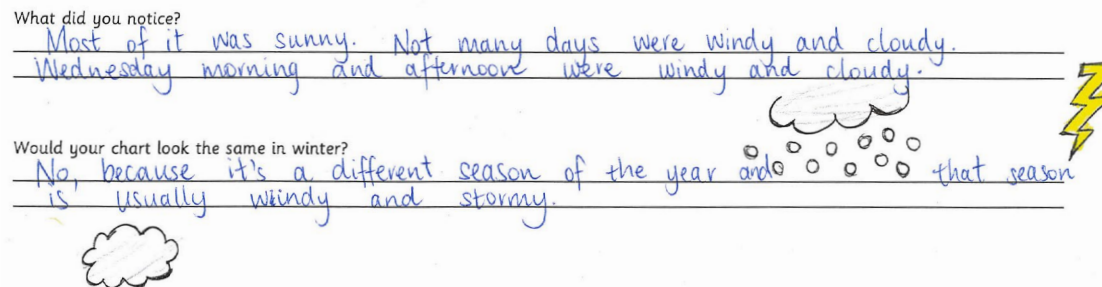 What did you notice?
Most of it was sunny. Not many days were windy and cloudy.
Wednesday morning and afternoone were windy and cloudy.
Would your chart look the same in winter?
No, because it's a different season of the year and that season
is usually wiindy and stormy.